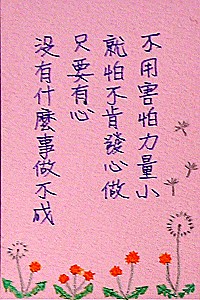 不用害怕力量小
就怕不肯發心做
只要有心
沒有什麼事做不成